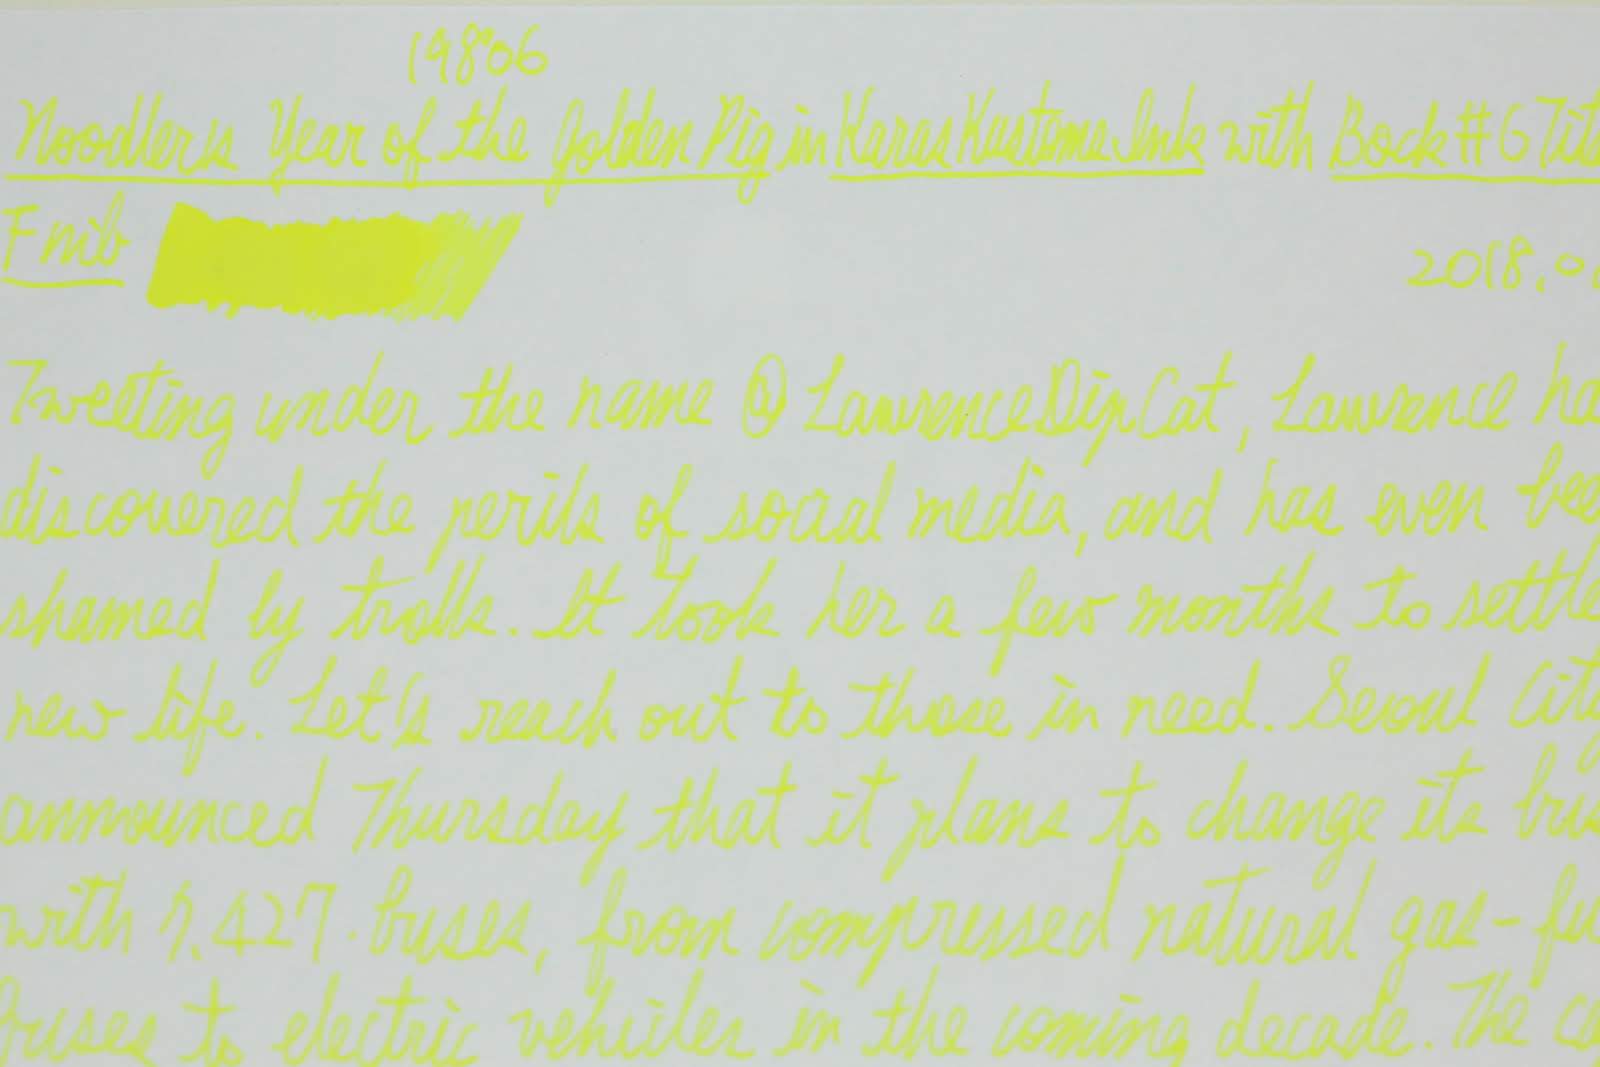 19806
Noodler's Year of the Golden Pig in Karas Kustoms Ink with Bock #6 Tit
F nib
2018.0
Tweeting under the name @LawrenceDipCat, Lawrence ha
discovered the perils of social media, and has even bee
shamed by trolls. It took her a few months to settle
new life. Let's reach out to those in need. Seoul City
announced Thursday that it plans to change its bus
with 7,427 buses, from compressed natural gas-fu
buses to electric vehicles in the coming decade. The c